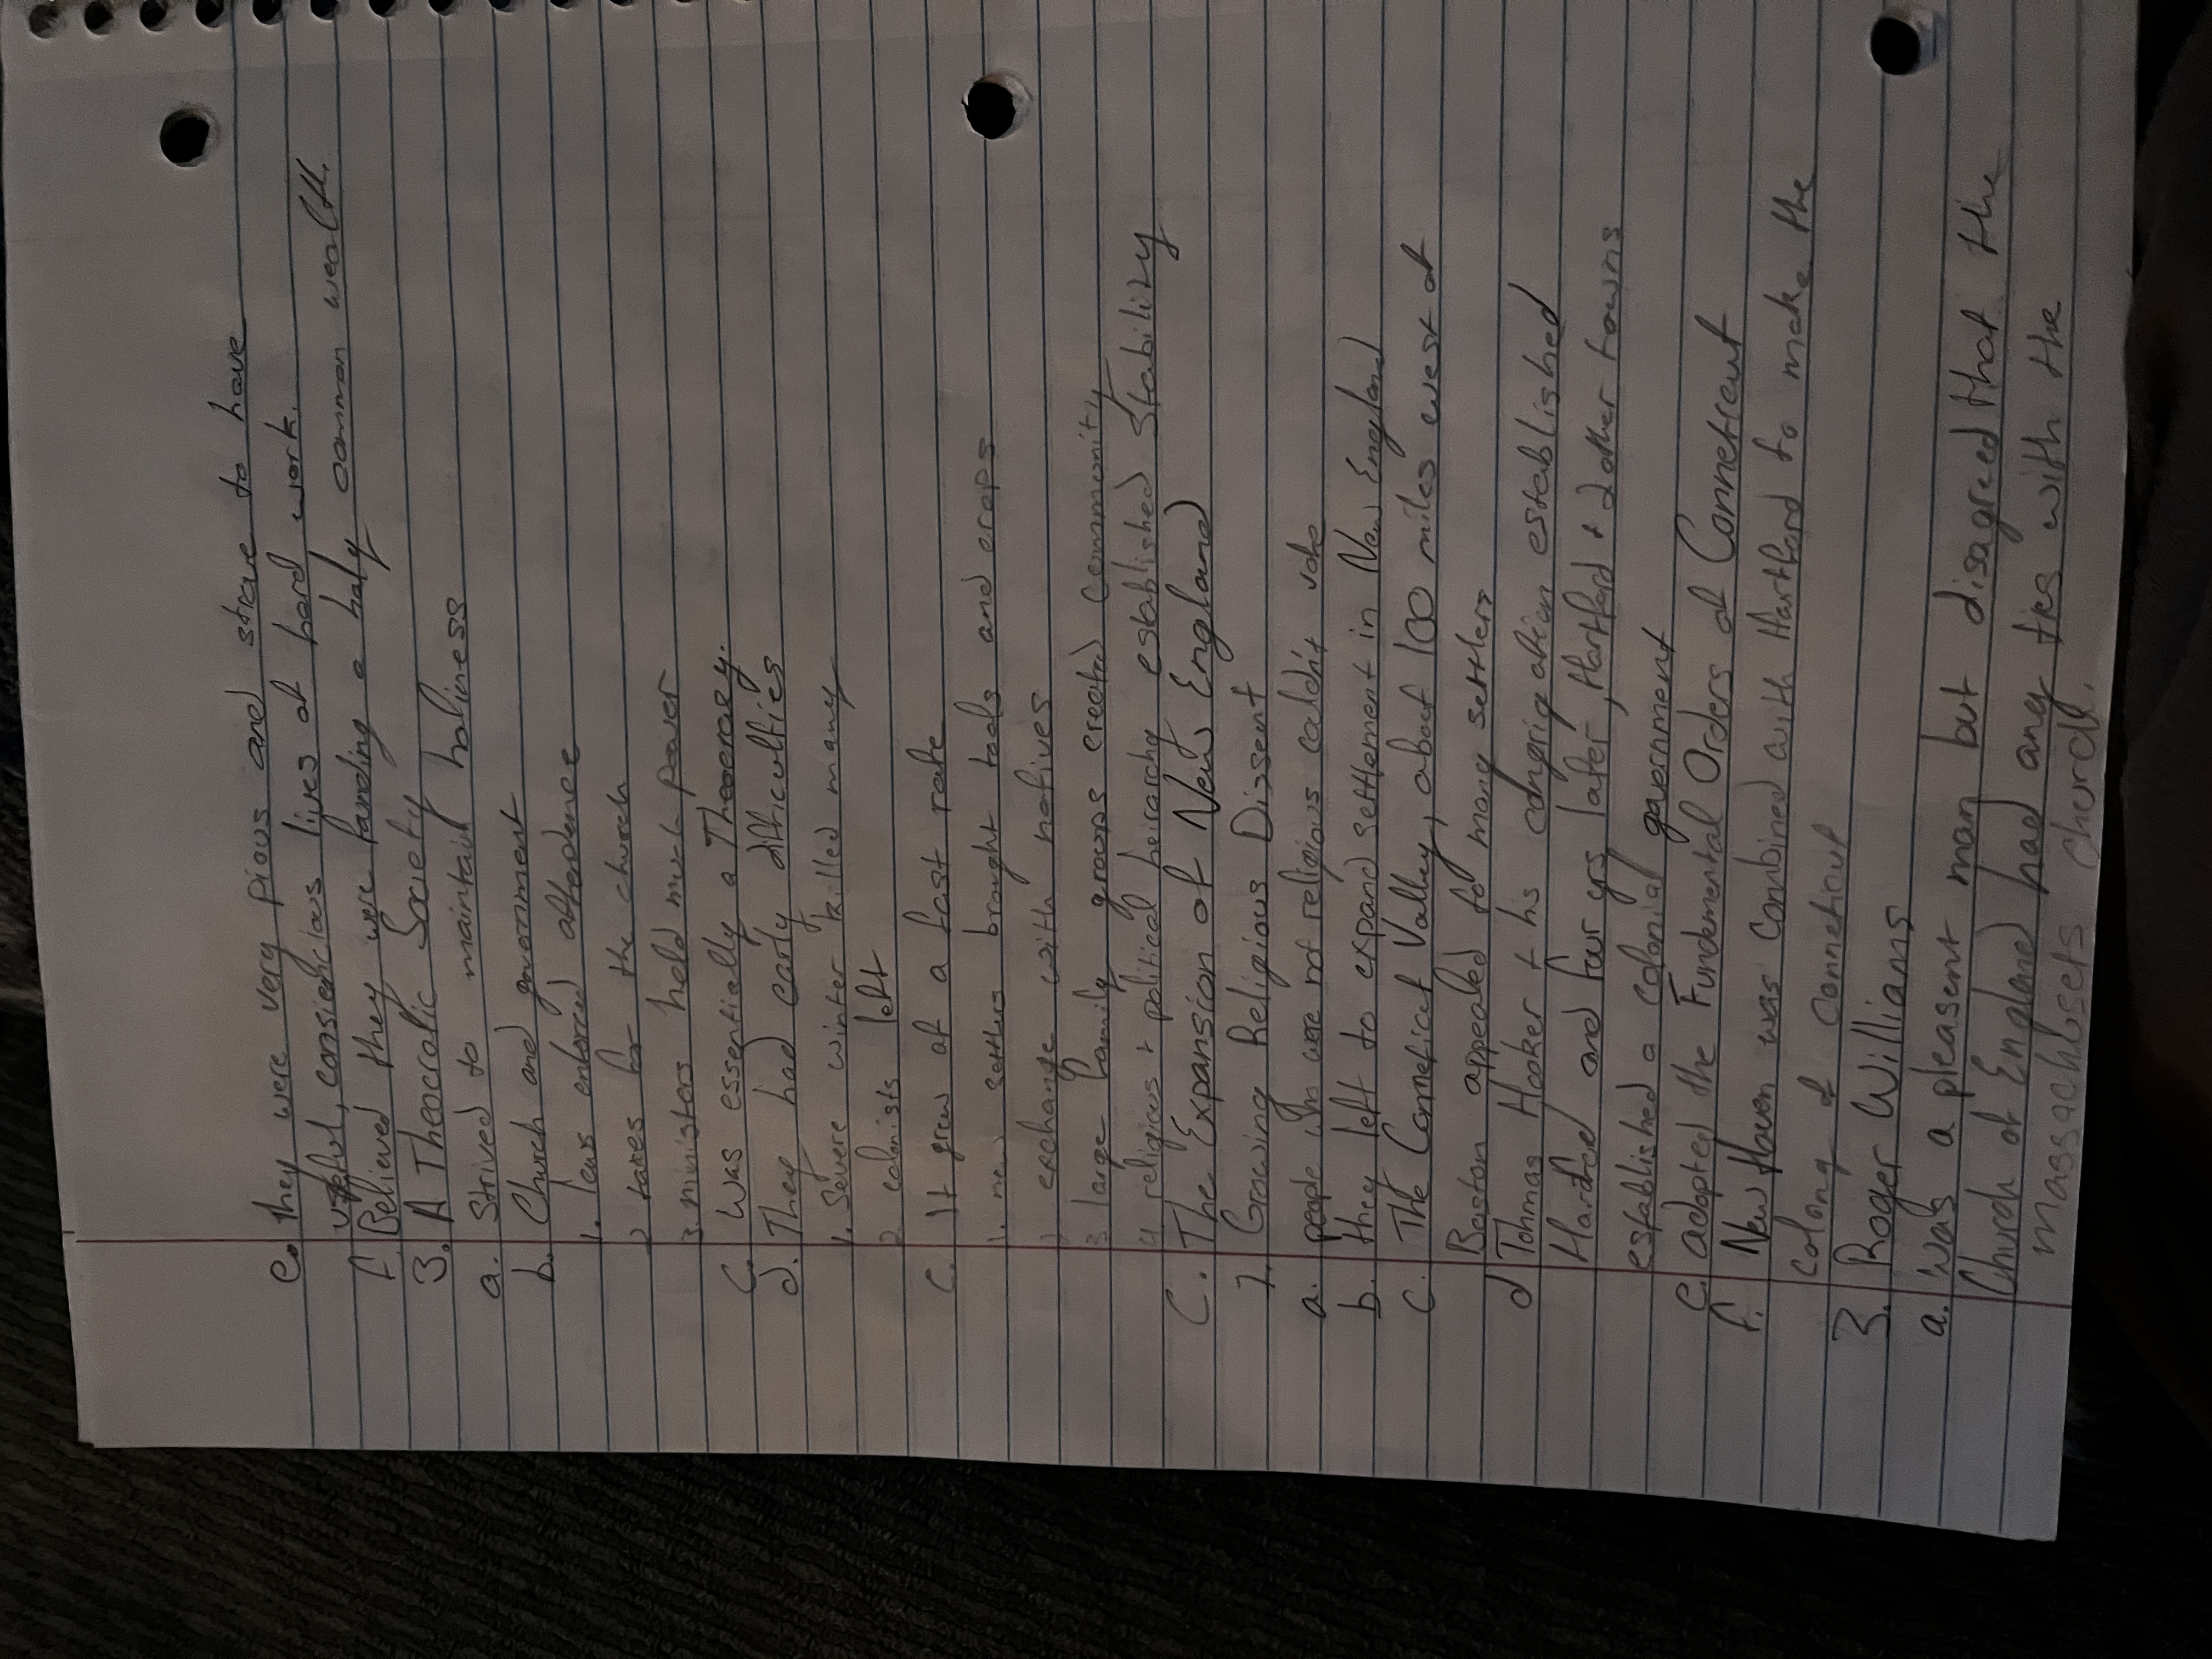 e. they were very pious and strove to have
useful, consienclous lives of hard work.
f. Believed they were fanding a holy common wealth.
3. A Theocratic Society
a. Strived to maintain holiness
b. Church and government
1. laws enforced attendence
2 taxes for the church
3. ministers held much power
C. Was essentially a Theocracy.
d. They had early difficulties
1. Severe winter killed many
2. colonists left
C. It grew at a fast rate
1. new settlers brought tools and crops
2 exchange with natives
3 large family groups created community
4 religious + political heirarchy established stability
C. The Expansion of New England
1. Growing Religious Dissent
a. people who were not religious couldn't vote
b. they left to expand settlement in New England
C. The Conneticut Valley, about 100 miles west of
Boston appealed to many settlers
d Tohmas Hooker + his congrigation established
Hartford and four yrs later, Hartford + 2 other towns
established a colonial government
e. adopted the Fundemental Orders of Conneticut
f. New Haven was combined with Hartford to make the
colony of conneticut
3. Roger Willians
a. Was a pleasent man but disagreed that the
Church of England had any ties with the
massachusets church.